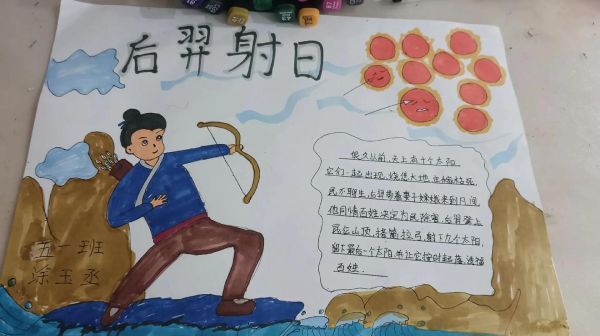 后羿射日
很久以前,天上有十个太阳
它们一起出现,烧焦大地,庄稼枯死,
民不聊生,后羿带着妻子嫦娥来到凡间,
他同情百姓决定为民除害,后羿登上
昆仑山顶,搭箭拉弓,射下九个太阳,
留下最后一个太阳,并让它按时起落,造福
百姓.
五一班
涂玉丞